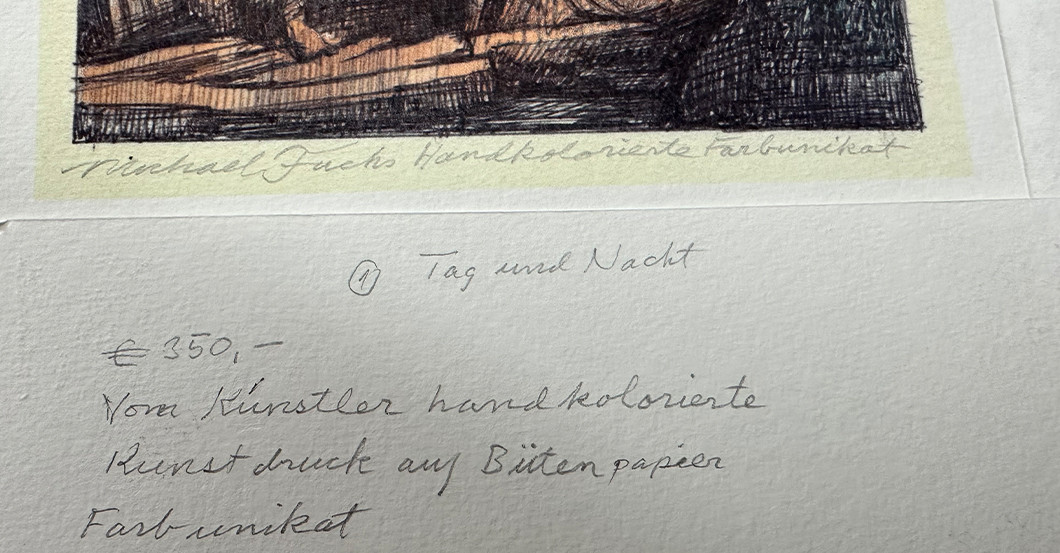 Michael Fuchs Handkolorierte Farbunikat
① Tag und Nacht
€ 350,–
Vom Künstler handkolorierte
Kunstdruck auf Bütenpapier
Farbunikat